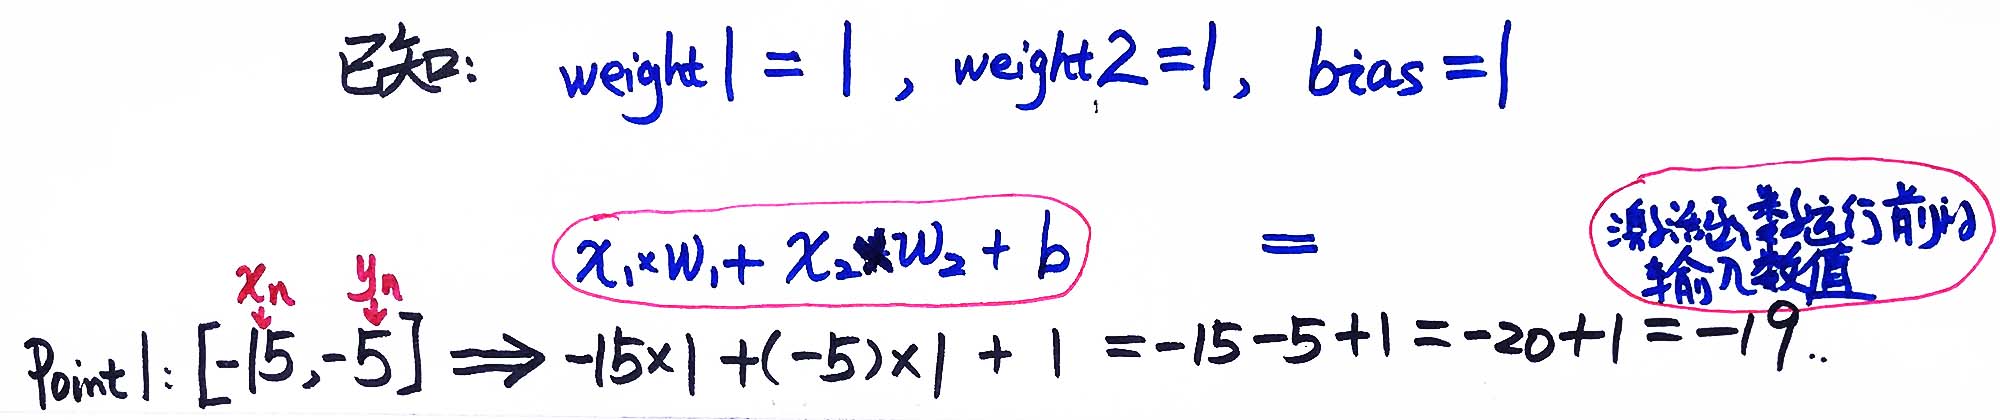 已知: weight1 = 1, weight2=1, bias=1
x₁×w₁+ x₂×w₂+b = 激活函数运行前的
输入数值
xn yn
Point1: [-15,-5] ⟹ -15×1+(-5)×1+1 =-15-5+1=-20+1=-19..